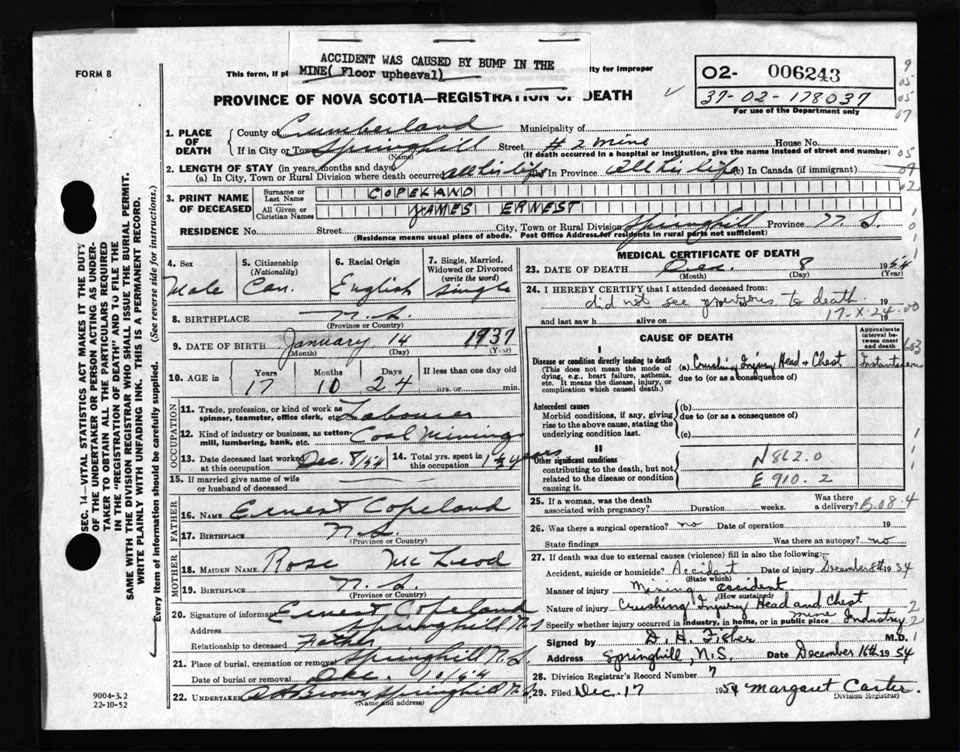 ACCIDENT WAS CAUSED BY BUMP IN THE
MINE( Floor upheaval)
FORM 8
This form, if pl
ity for improper
02- 006243
37-02-178037
For use of the Department only
9
05
05
07
PROVINCE OF NOVA SCOTIA—REGISTRATION OF DEATH
1. PLACE OF DEATH
County of Cumberland Municipality of
If in City or Town Springhill Street # 2 mine House No.
(Name) (If death occurred in a hospital or institution, give the name instead of street and number)
05
2. LENGTH OF STAY (in years, months and days)
(a) In City, Town or Rural Division where death occurred all his life (b) in Province All his life (c) In Canada (if immigrant)
02
3. PRINT NAME OF DECEASED
Surname or Last Name COPELAND
All Given or Christian Names JAMES ERNEST
RESIDENCE No. Street City, Town or Rural Division Springhill Province N.S.
(Residence means usual place of abode. Post Office Address for residents in rural parts not sufficient)
4. Sex
Male
5. Citizenship
(Nationality)
Can.
6. Racial Origin
English
7. Single, Married, Widowed or Divorced
(write the word)
Single
8. BIRTHPLACE N.S.
(Province or Country)
9. DATE OF BIRTH January 14 1937
(Month) (Day) (Year)
10. AGE in Years Months Days If less than one day old
17 10 24 hrs. or min.
OCCUPATION
11. Trade, profession, or kind of work as spinner, teamster, office clerk, etc. Labourer
12. Kind of industry or business, as cotton-mill, lumbering, bank, etc. Coal Mining
13. Date deceased last worked at this occupation Dec. 8/54
14. Total yrs. spent in this occupation 1½ years
15. If married give name of wife or husband of deceased
FATHER
16. NAME Ernest Copeland
17. BIRTHPLACE N.S.
(Province or Country)
MOTHER
18. MAIDEN NAME Rose McLeod
19. BIRTHPLACE N.S
(Province or Country)
20. Signature of informant Ernest Copeland
Address Springhill N.S
Relationship to deceased Father
21. Place of burial, cremation or removal Springhill N.S.
Date of burial or removal Dec. 10/54
22. UNDERTAKER Brown Springhill N.S
(Name and address)
MEDICAL CERTIFICATE OF DEATH
23. DATE OF DEATH Dec. 8 1954
(Month) (Day) (Year)
24. I HEREBY CERTIFY that I attended deceased from:
did not see previous to death. 19
and last saw h alive on 19
17-X-24-00
CAUSE OF DEATH
Approximate interval between onset and death
603
I
Disease or condition directly leading to death
(This does not mean the mode of dying, e.g., heart failure, asthenia, etc. It means the disease, injury, or complication which caused death.)
(a) Crushing Injury Head + Chest Instantaneous
due to (or as a consequence of)
Antecedent causes
Morbid conditions, if any, giving rise to the above cause, stating the underlying condition last.
(b)
due to (or as a consequence of)
(c)
II
Other significant conditions
contributing to the death, but not related to the disease or condition causing it.
N862.0
E 910.2
25. If a woman, was the death associated with pregnancy? Duration weeks. Was there a delivery?
B.08.4
26. Was there a surgical operation? no Date of operation 19
State findings Was there an autopsy? no
27. If death was due to external causes (violence) fill in also the following:
Accident, suicide or homicide? Accident Date of injury December 8th 1954
(State which)
Manner of injury Mining accident
(How sustained)
Nature of injury Crushing Injury Head and Chest
Specify whether injury occurred in industry, in home, or in public place mine Industry
2
2
Signed by D. H. Fisher M.D.
1
Address Springhill, N.S. Date December 16th 1954
28. Division Registrar's Record Number 7
29. Filed Dec. 17 1954 Margaret Carter.
Division Registrar)
SEC. 14—VITAL STATISTICS ACT MAKES IT THE DUTY
OF THE UNDERTAKER OR PERSON ACTING AS UNDER-
TAKER TO OBTAIN ALL THE PARTICULARS REQUIRED
IN THE "REGISTRATION OF DEATH" AND TO FILE THE
SAME WITH THE DIVISION REGISTRAR WHO SHALL ISSUE THE BURIAL PERMIT.
WRITE PLAINLY WITH UNFADING INK. THIS IS A PERMANENT RECORD.
Every item of information should be carefully supplied. (See reverse side for instructions.)
9004-3.2
22-10-52